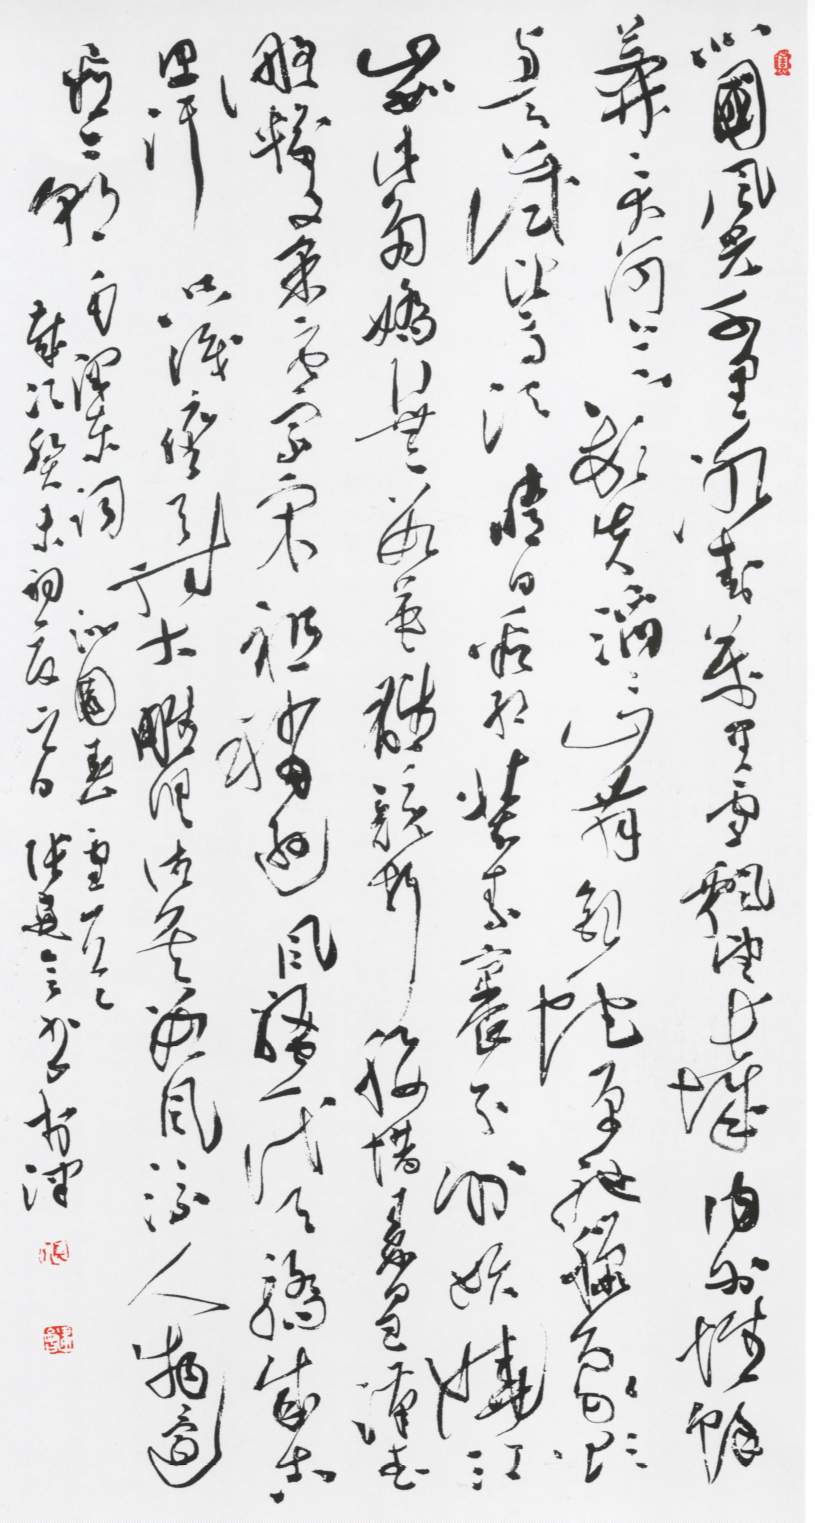 北國風光千里冰封萬里雪飄望長城內外惟餘
莽莽大河上下頓失滔滔山舞銀蛇原馳蠟象欲
與天公試比高須晴日看紅裝素裹分外妖嬈江
山如此多嬌引無數英雄競折腰惜秦皇漢武
略輸文采唐宗宋祖稍遜風騷一代天驕成吉
思汗只識彎弓射大雕俱往矣數風流人物還
看今朝毛澤東詞沁園春雪一首
歲次癸未初夏之日張建會書於津